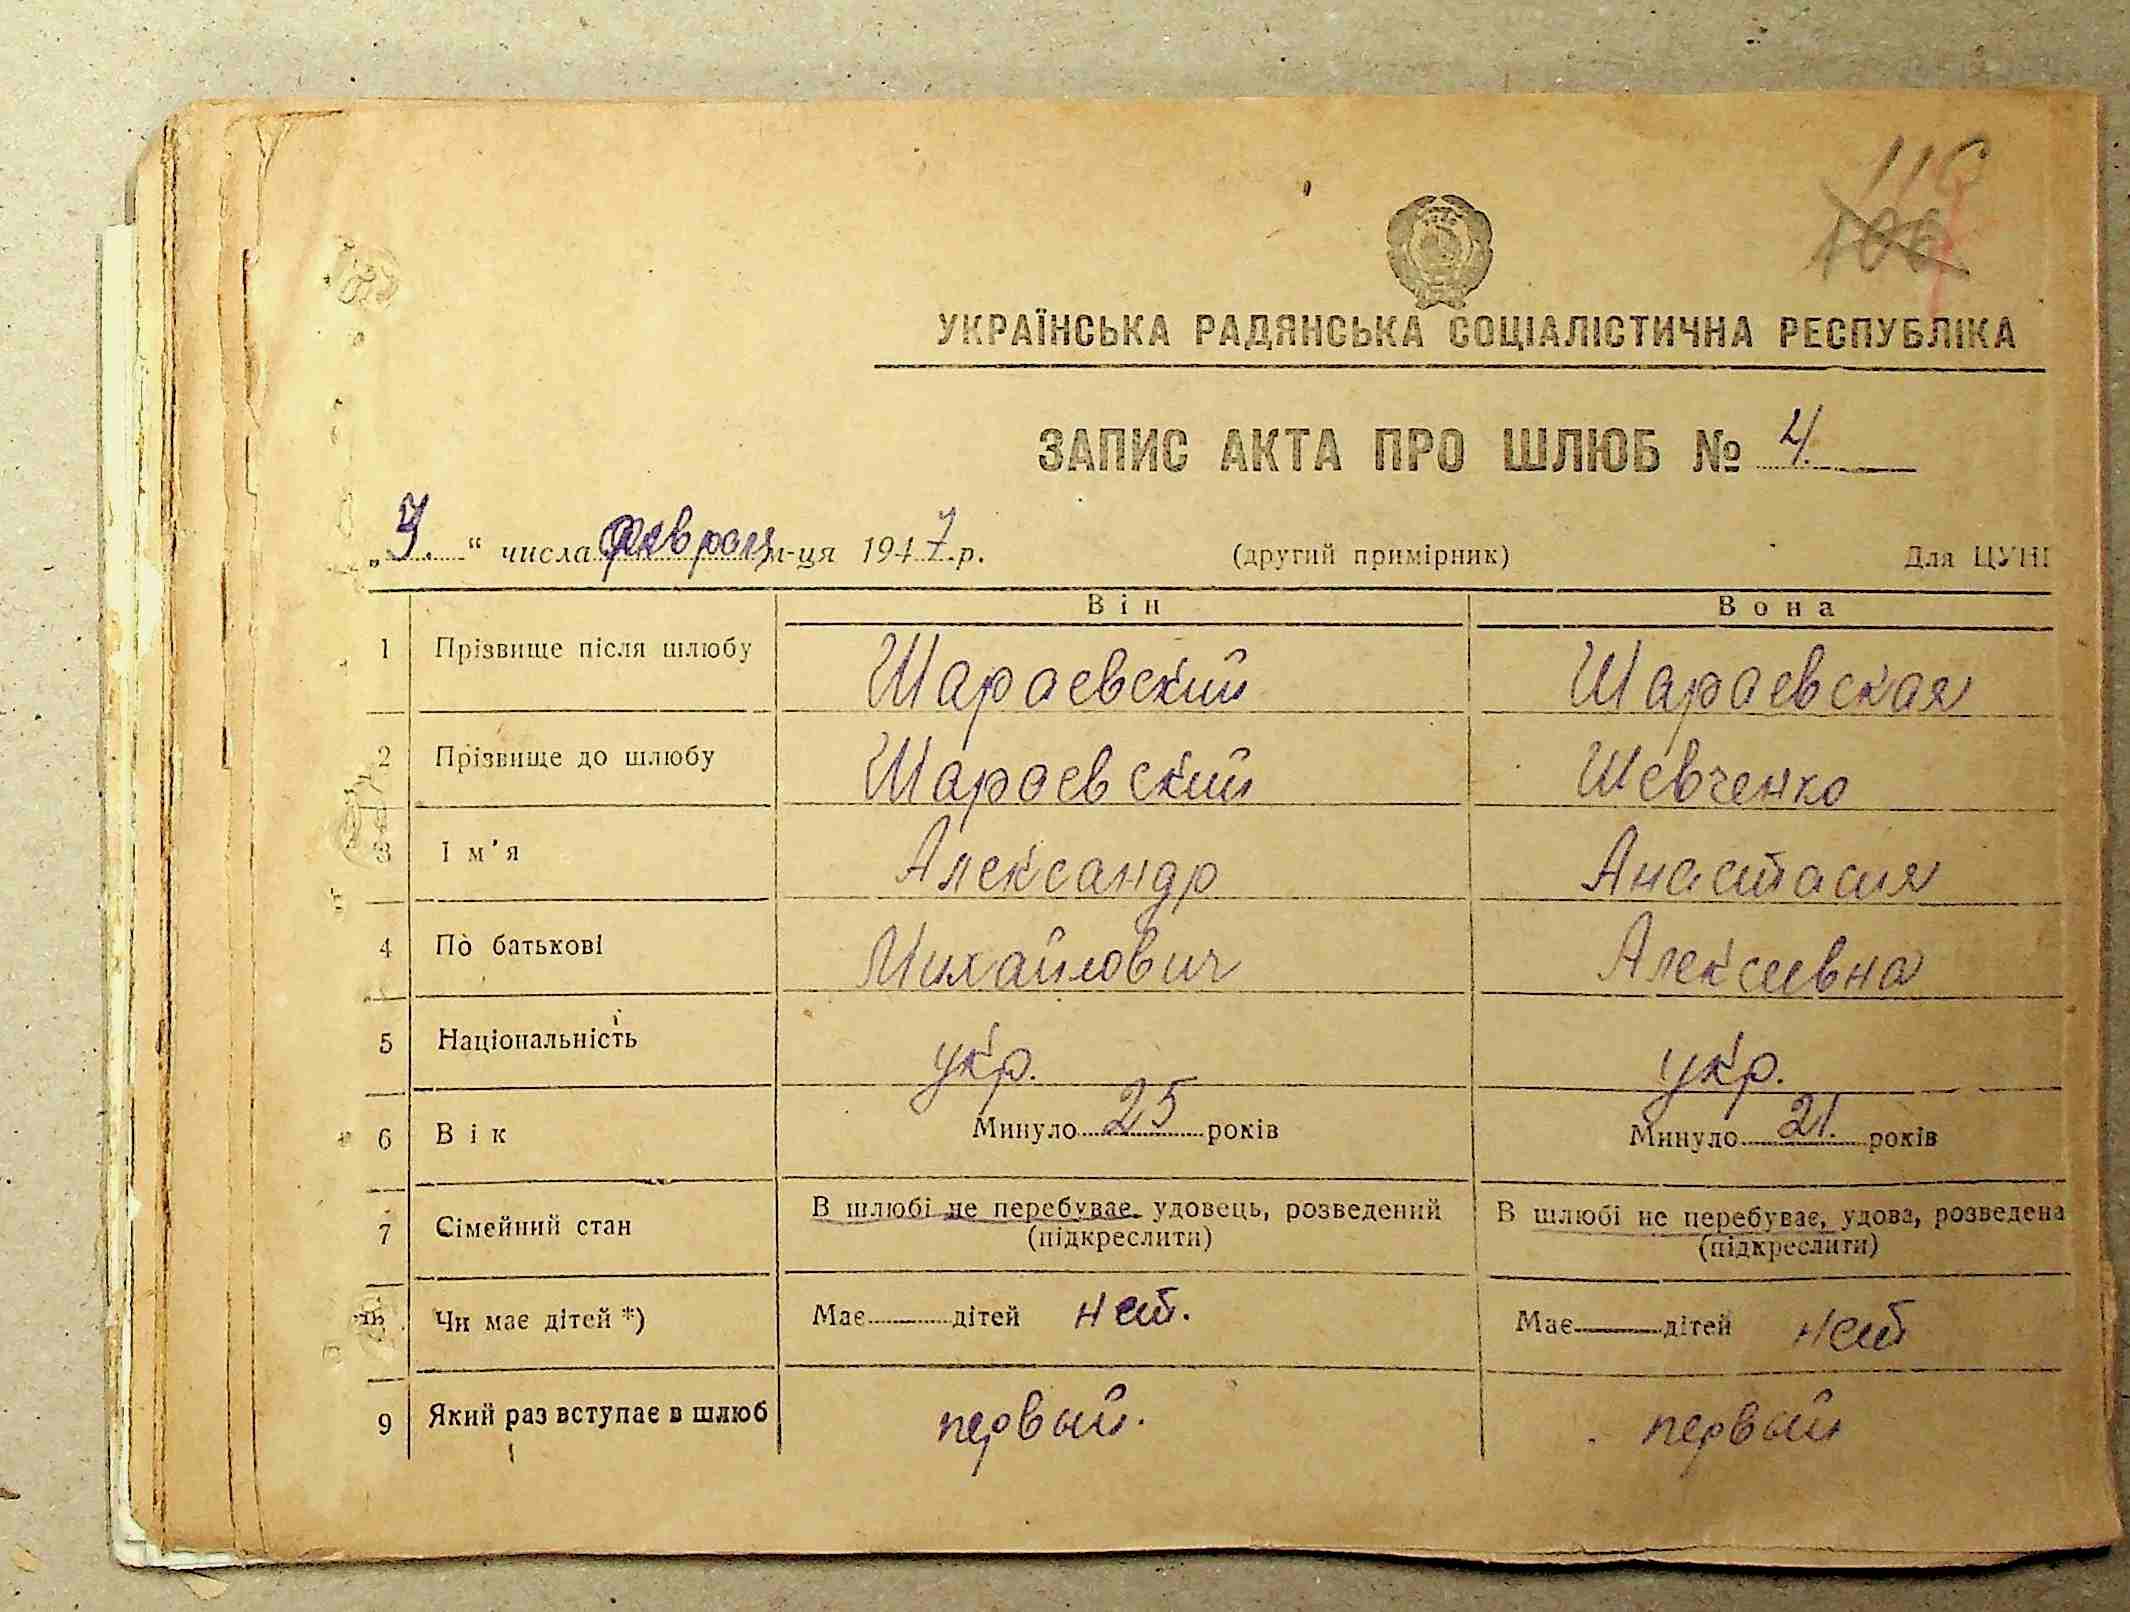 116
106
УКРАЇНСЬКА РАДЯНСЬКА СОЦІАЛІСТИЧНА РЕСПУБЛІКА
ЗАПИС АКТА ПРО ШЛЮБ № 4.
„ “ числа февраля м-ця 1947 р. (другий примірник) Для ЦУНГ
Він Вона
1 Прізвище після шлюбу Шараевский Шараевская
2 Прізвище до шлюбу Шараевский Шевченко
3 Ім'я Александр Анастасия
4 По батькові Михайлович Алексеевна
5 Національність укр. укр.
6 Вік Минуло 25 років Минуло 21. років
7 Сімейний стан В шлюбі не перебуває, удовець, розведений В шлюбі не перебуває, удова, розведена
(підкреслити) (підкреслити)
Чи має дітей *) Має дітей нет. Має дітей нет
9 Який раз вступає в шлюб первый. первый